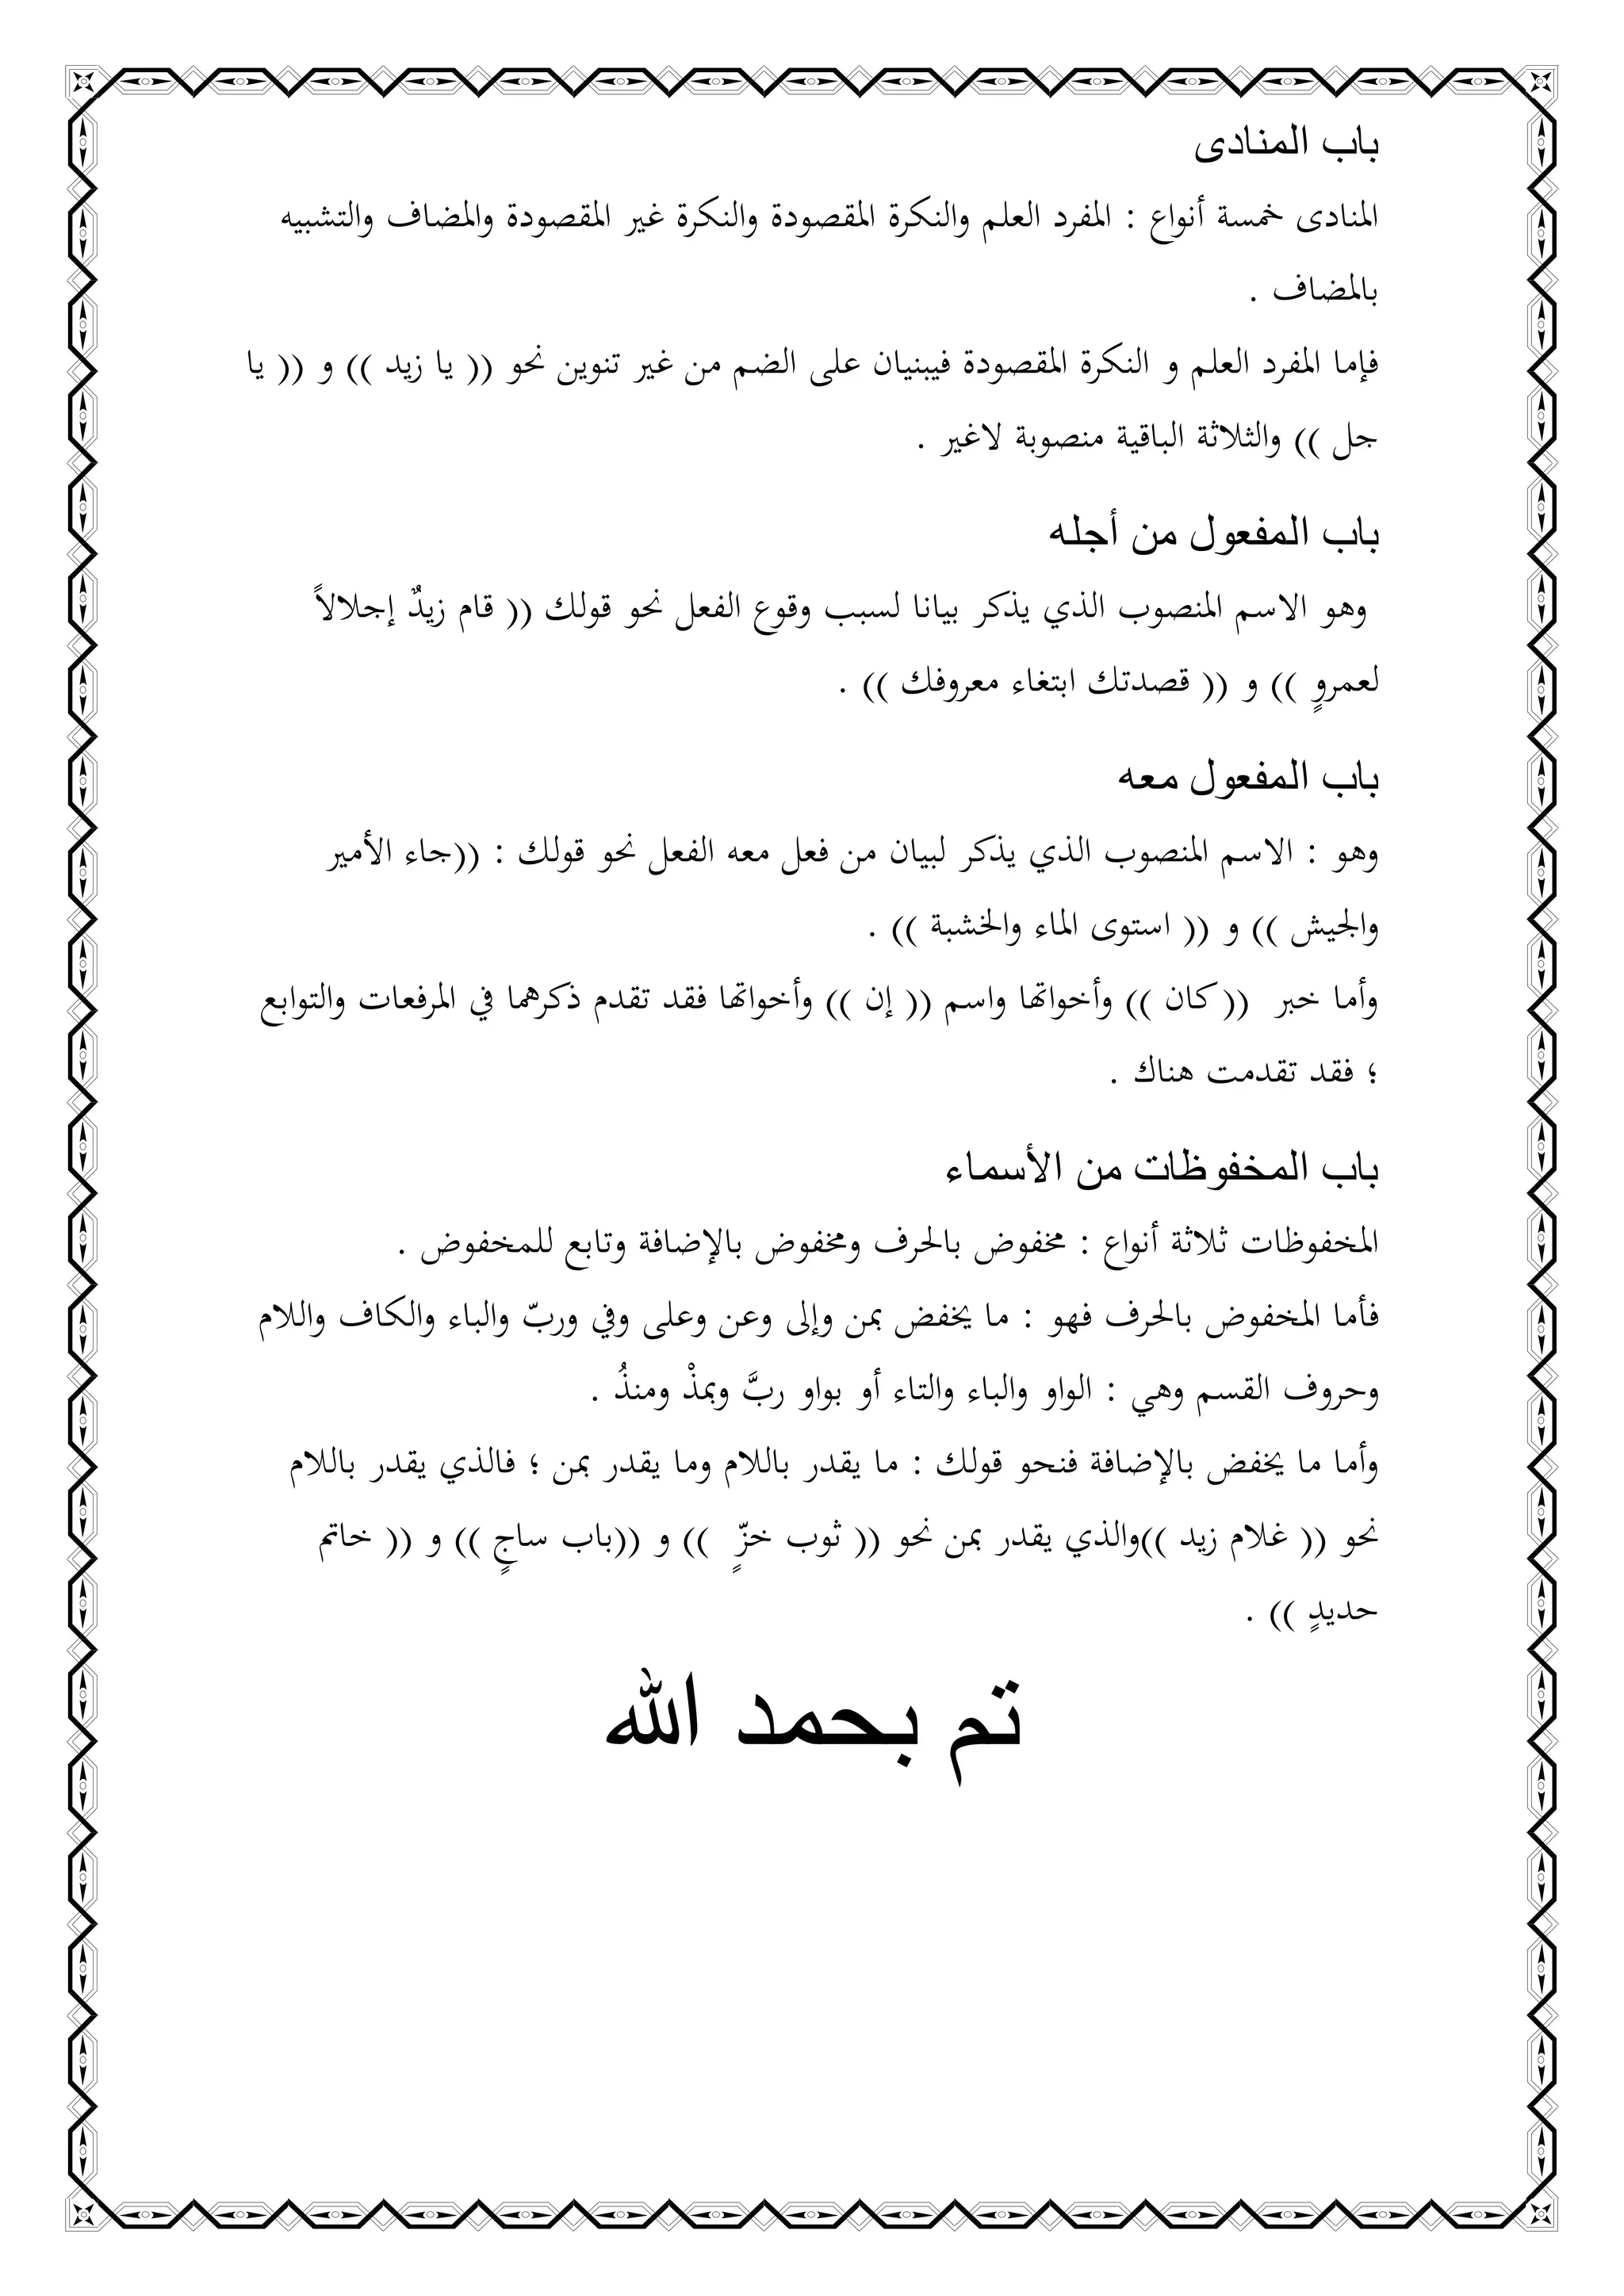 باب المنادى
المنادى خمسة أنواع : المفرد العلم والنكرة المقصودة والنكرة غير المقصودة والمضاف والتشبيه
بالمضاف .
فإما المفرد العلم و النكرة المقصودة فيبنيان على الضم من غير تنوين نحو (( يا زيد )) و (( يا
جل )) والثلاثة الباقية منصوبة لاغير .
باب المفعول من أجله
وهو الاسم المنصوب الذي يذكر بيانا لسبب وقوع الفعل نحو قولك (( قام زيدٌ إجلالاً
لعمروٍ )) و (( قصدتك ابتغاء معروفك )) .
باب المفعول معه
وهو : الاسم المنصوب الذي يذكر لبيان من فعل معه الفعل نحو قولك : ((جاء الأمير
والجيش )) و (( استوى الماء والخشبة )) .
وأما خبر (( كان )) وأخواتها واسم (( إن )) وأخواتها فقد تقدم ذكرهما في المرفعات والتوابع
؛ فقد تقدمت هناك .
باب المخفوظات من الأسماء
المخفوظات ثلاثة أنواع : مخفوض بالحرف ومخفوض بالإضافة وتابع للمخفوض .
فأما المخفوض بالحرف فهو : ما يخفض بمن وإلى وعن وعلى وفي وربّ والباء والكاف واللام
وحروف القسم وهي : الواو والباء والتاء أو بواو ربَّ وبمذْ ومنذُ .
وأما ما يخفض بالإضافة فنحو قولك : ما يقدر باللام وما يقدر بمن ؛ فالذي يقدر باللام
نحو (( غلام زيد ))والذي يقدر بمن نحو (( ثوب خزٍّ )) و ((باب ساجٍ )) و (( خاتم
حديدٍ )) .
تم بحمد الله